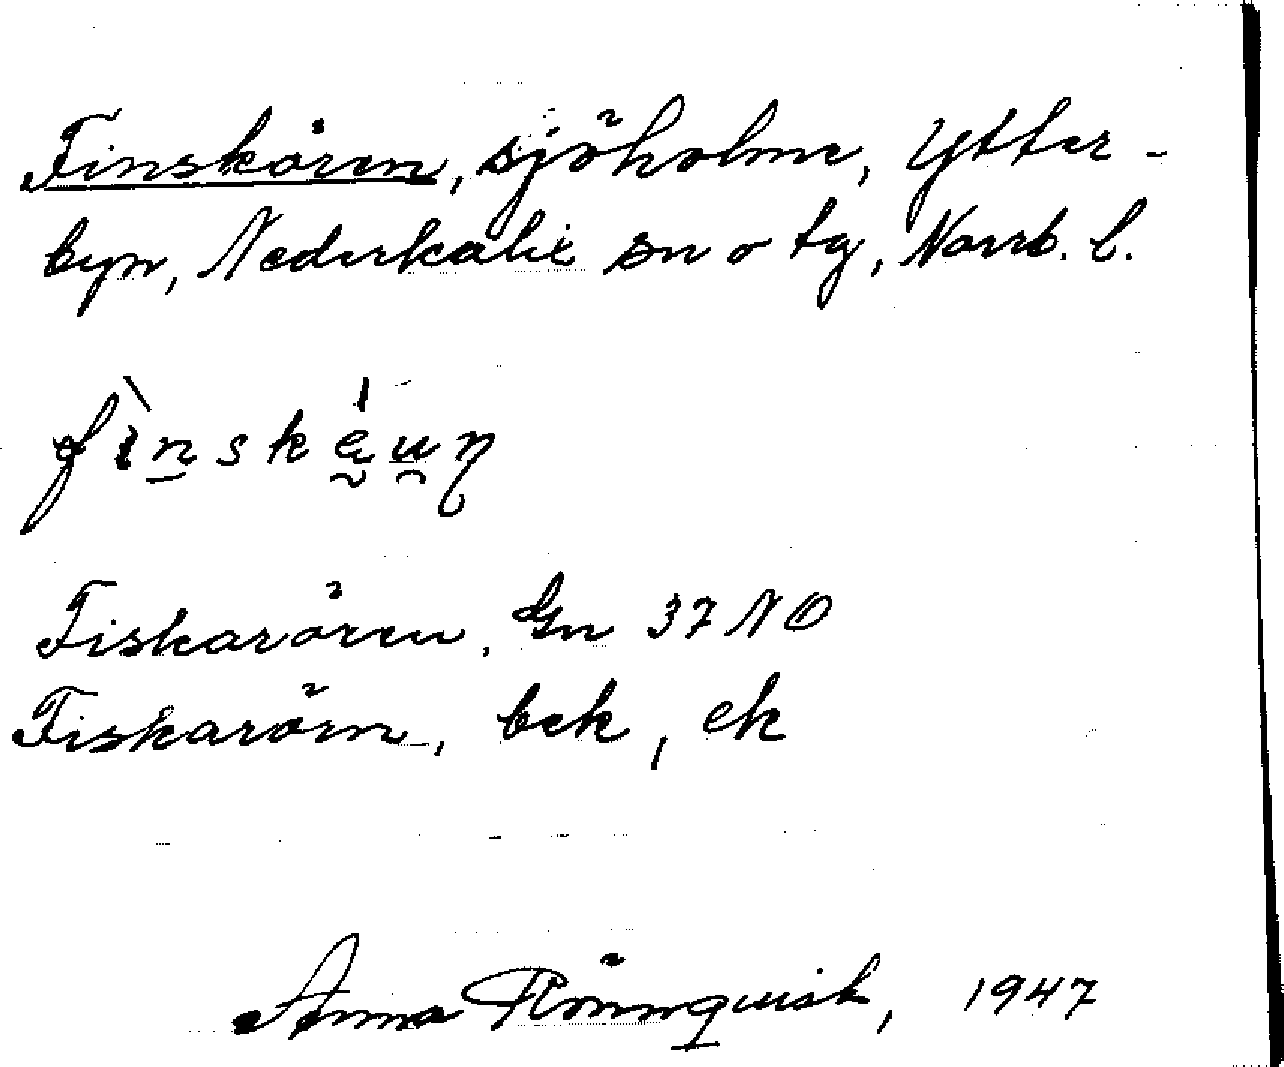 Finskåren, sjöholme, Ytter-
byn, Nederkalix sn o tg, Norrb. l.
Fiskarören, Gn 37 NO
Fiskarörn, bek, ek
Anna Rönnquist, 1947